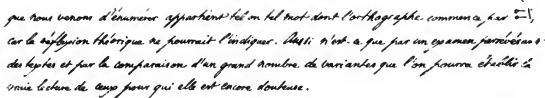 que nous venons d'énumérer appartient tel ou tel mot dont l'orthographe commence par
car la réflexion théorique ne pourrait l'indiquer. Aussi n'est-ce que par un examen persévérant
des textes et par la comparaison d'un grand nombre de variantes que l'on pourra établir la
vraie lecture de ceux pour qui elle est encore douteuse.